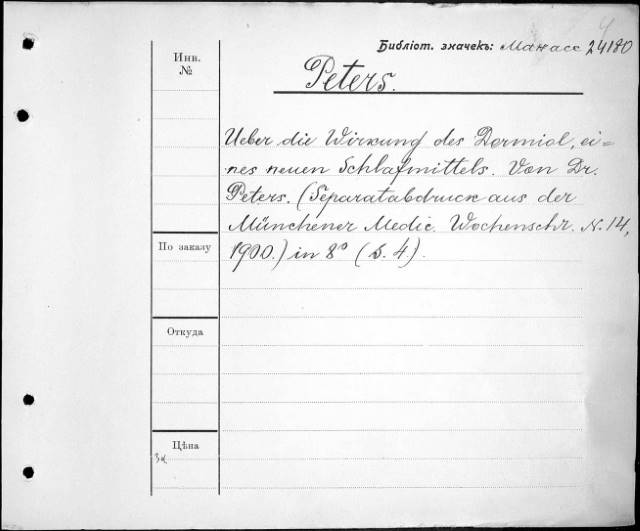 Библіот. значекъ: Манасс 24180
Инв.
№
Peters.
Ueber die Wirkung des Dormiol, ei=
nes neuen Schlafmittels. Von Dr.
Peters. (Separatabdruck aus der
Münchener Medic. Wochenschr. N. 14,
1900.) in 8° (S. 4).
По заказу
Откуда
Цѣна